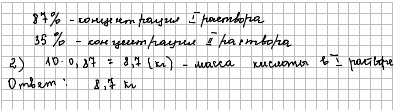 87% - концентрация I раствора
35% - концентрация II раствора
2) 10·0,87 = 8,7 (кг) - масса кислоты в I растворе
Ответ: 8,7 кг